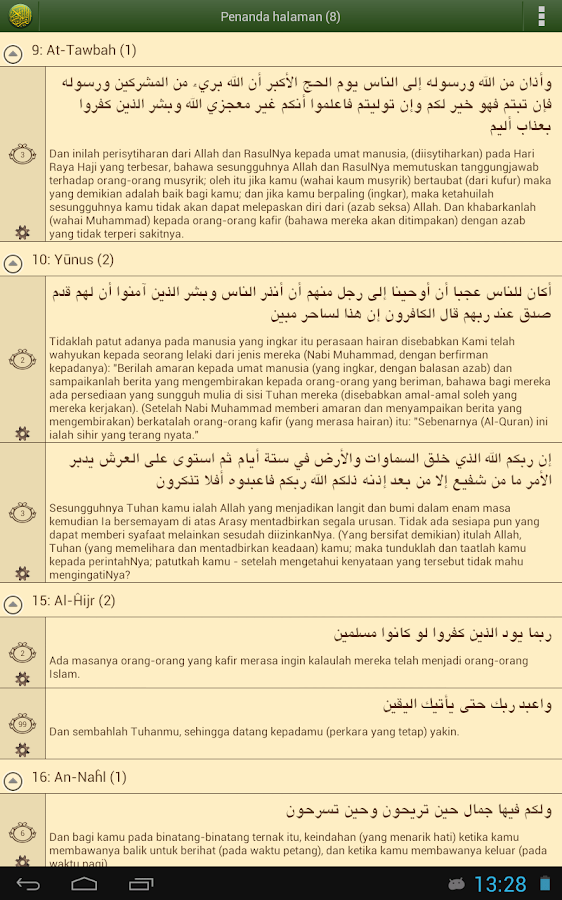 Penanda halaman (8)
9: At-Tawbah (1)
وأذان من الله ورسوله إلى الناس يوم الحج الأكبر أن الله بريء من المشركين ورسوله
فإن تبتم فهو خير لكم وإن توليتم فاعلموا أنكم غير معجزي الله وبشر الذين كفروا
بعذاب أليم
3
Dan inilah perisytiharan dari Allah dan RasulNya kepada umat manusia, (diisytiharkan) pada Hari
Raya Haji yang terbesar, bahawa sesungguhnya Allah dan RasulNya memutuskan tanggungjawab
terhadap orang-orang musyrik; oleh itu jika kamu (wahai kaum musyrik) bertaubat (dari kufur) maka
yang demikian adalah baik bagi kamu; dan jika kamu berpaling (ingkar), maka ketahuilah
sesungguhnya kamu tidak akan dapat melepaskan diri dari (azab seksa) Allah. Dan khabarkanlah
(wahai Muhammad) kepada orang-orang kafir (bahawa mereka akan ditimpakan) dengan azab
yang tidak terperi sakitnya.
10: Yūnus (2)
أكان للناس عجبا أن أوحينا إلى رجل منهم أن أنذر الناس وبشر الذين آمنوا أن لهم قدم
صدق عند ربهم قال الكافرون إن هذا لساحر مبين
2
Tidaklah patut adanya pada manusia yang ingkar itu perasaan hairan disebabkan Kami telah
wahyukan kepada seorang lelaki dari jenis mereka (Nabi Muhammad, dengan berfirman
kepadanya): "Berilah amaran kepada umat manusia (yang ingkar, dengan balasan azab) dan
sampaikanlah berita yang mengembirakan kepada orang-orang yang beriman, bahawa bagi mereka
ada persediaan yang sungguh mulia di sisi Tuhan mereka (disebabkan amal-amal soleh yang
mereka kerjakan). (Setelah Nabi Muhammad memberi amaran dan menyampaikan berita yang
mengembirakan) berkatalah orang-orang kafir (yang merasa hairan) itu: "Sebenarnya (Al-Quran) ini
ialah sihir yang terang nyata."
إن ربكم الله الذي خلق السماوات والأرض في ستة أيام ثم استوى على العرش يدبر
الأمر ما من شفيع إلا من بعد إذنه ذلكم الله ربكم فاعبدوه أفلا تذكرون
3
Sesungguhnya Tuhan kamu ialah Allah yang menjadikan langit dan bumi dalam enam masa
kemudian Ia bersemayam di atas Arasy mentadbirkan segala urusan. Tidak ada sesiapa pun yang
dapat memberi syafaat melainkan sesudah diizinkanNya. (Yang bersifat demikian) itulah Allah,
Tuhan (yang memelihara dan mentadbirkan keadaan) kamu; maka tunduklah dan taatlah kamu
kepada perintahNya; patutkah kamu - setelah mengetahui kenyataan yang tersebut tidak mahu
mengingatiNya?
15: Al-Ĥijr (2)
ربما يود الذين كفروا لو كانوا مسلمين
2
Ada masanya orang-orang yang kafir merasa ingin kalaulah mereka telah menjadi orang-orang
Islam.
واعبد ربك حتى يأتيك اليقين
99
Dan sembahlah Tuhanmu, sehingga datang kepadamu (perkara yang tetap) yakin.
16: An-Naĥl (1)
ولكم فيها جمال حين تريحون وحين تسرحون
6
Dan bagi kamu pada binatang-binatang ternak itu, keindahan (yang menarik hati) ketika kamu
membawanya balik untuk berihat (pada waktu petang), dan ketika kamu membawanya keluar (pada
waktu pagi)
13:28